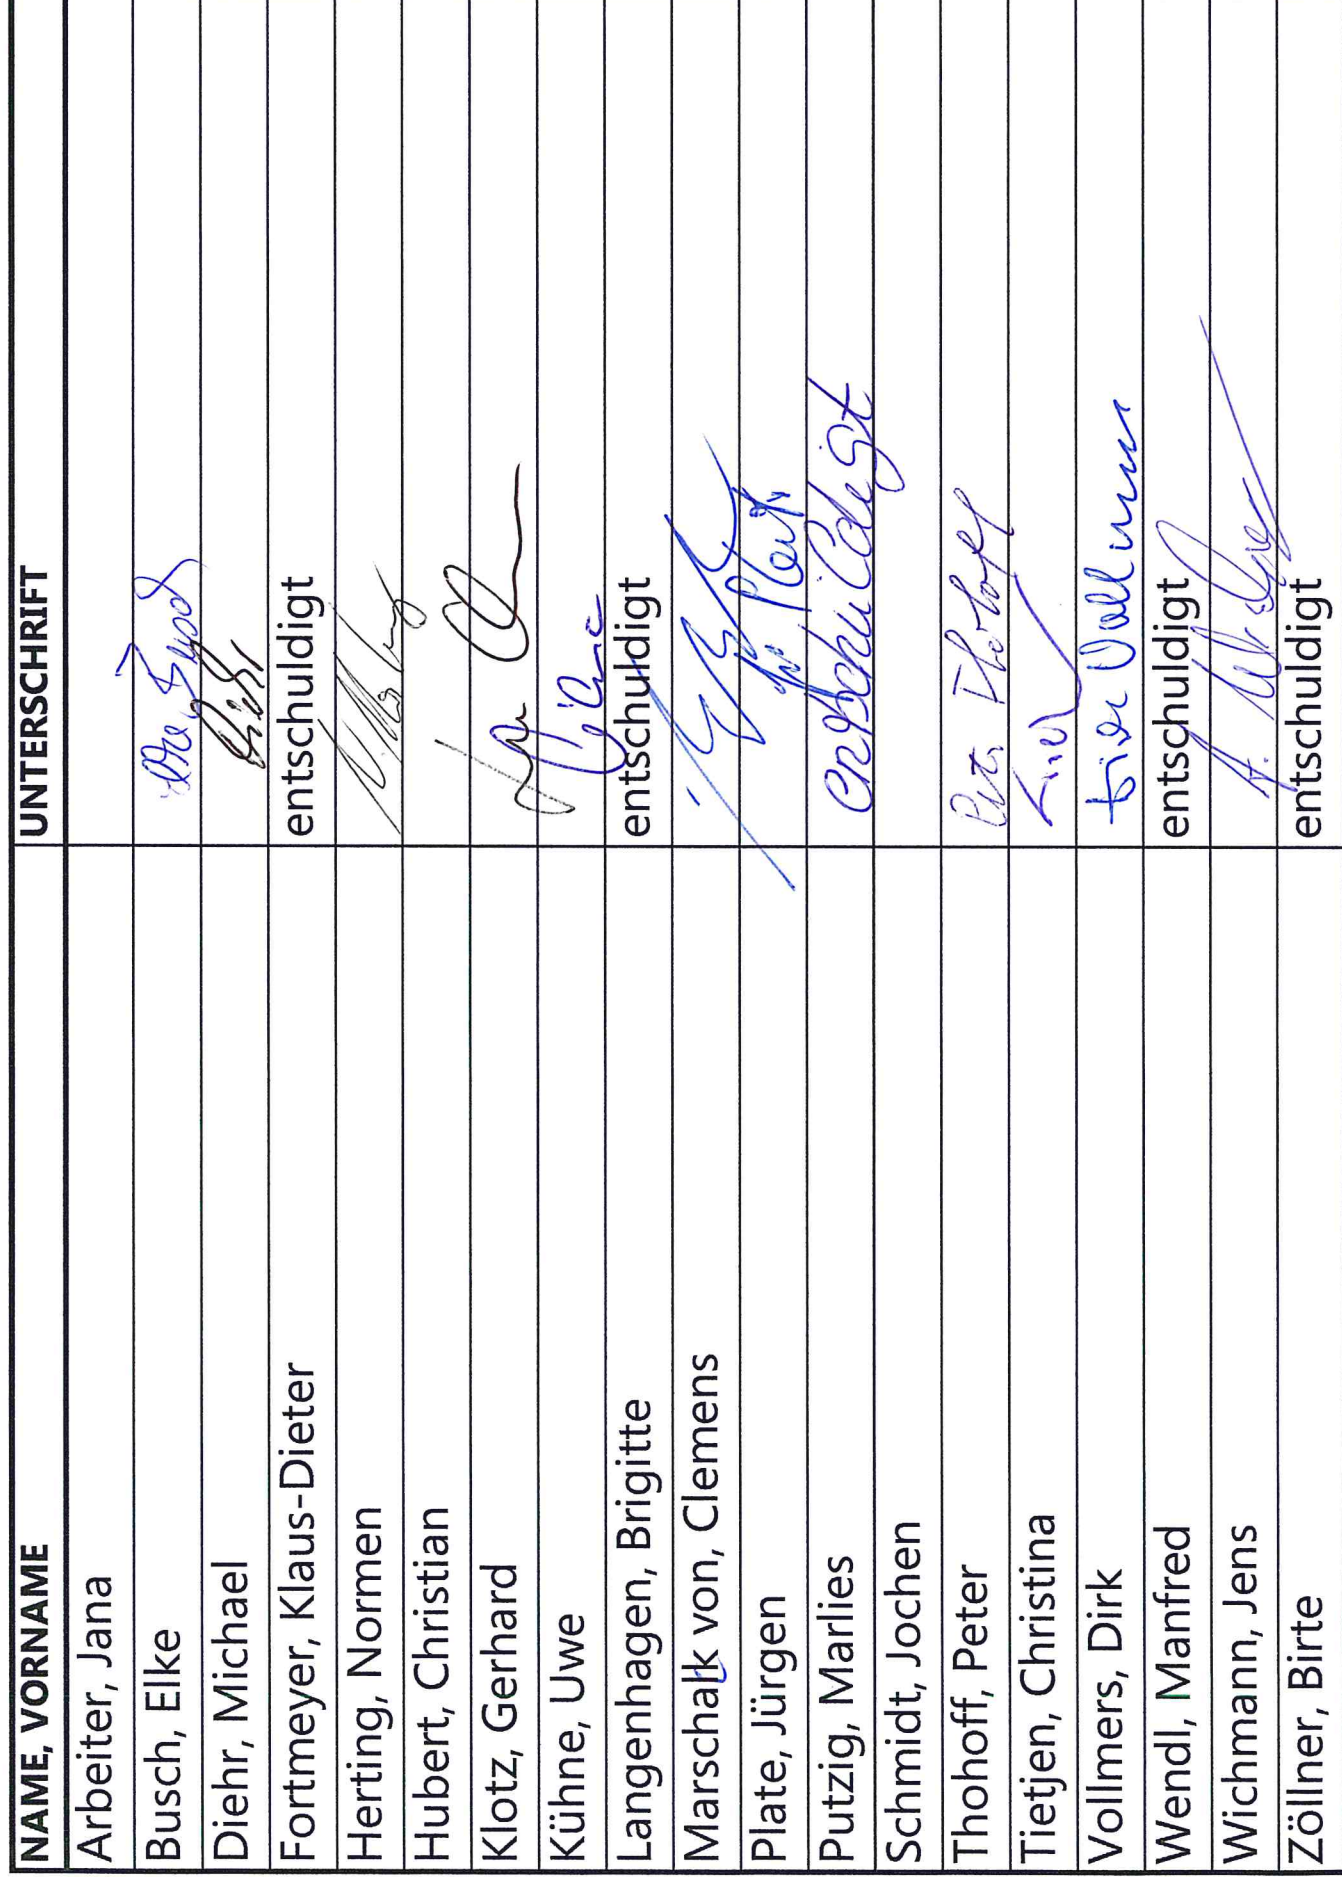 NAME, VORNAME UNTERSCHRIFT
Arbeiter, Jana
Busch, Elke
Diehr, Michael Diehr
Fortmeyer, Klaus-Dieter entschuldigt
Herting, Normen
Hubert, Christian
Klotz, Gerhard
Kühne, Uwe
Langenhagen, Brigitte entschuldigt
Marschalk von, Clemens
Plate, Jürgen
Putzig, Marlies entschuldigt
Schmidt, Jochen
Thohoff, Peter Peter Thohoff
Tietjen, Christina
Vollmers, Dirk Dirk Vollmers
Wendl, Manfred entschuldigt
Wichmann, Jens
Zöllner, Birte entschuldigt